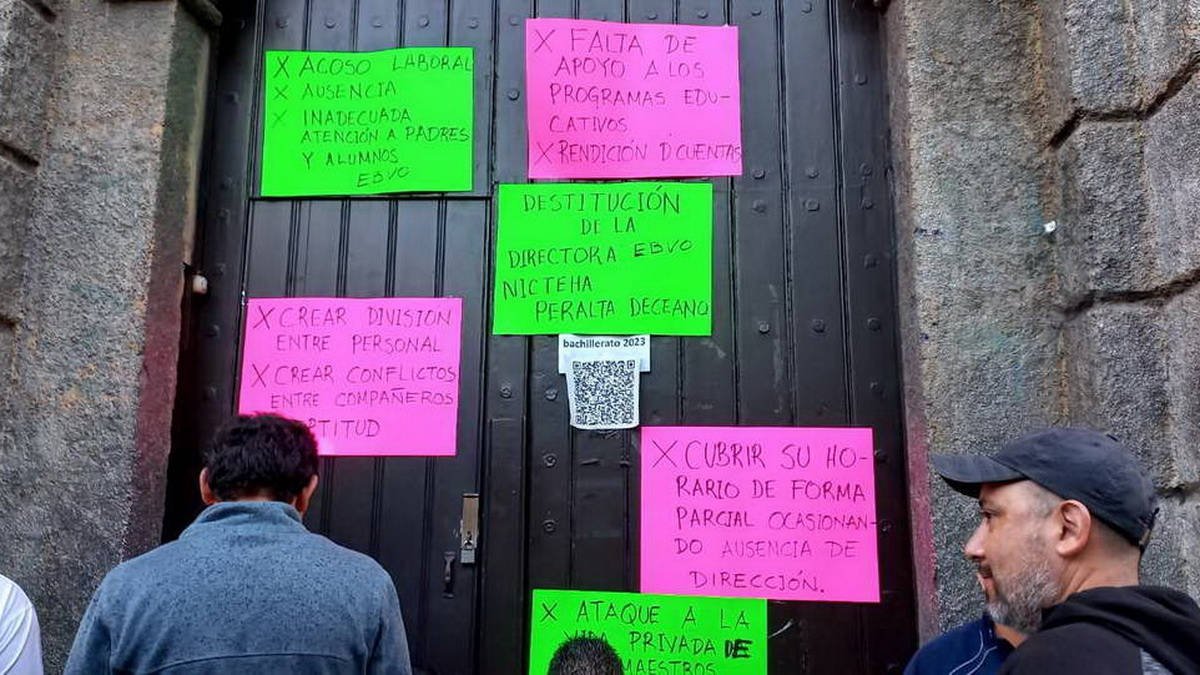 X ACOSO LABORAL
X AUSENCIA
X INADECUADA
ATENCIÓN A PADRES
Y ALUMNOS
EBVO
X FALTA DE
APOYO A LOS
PROGRAMAS EDU-
CATIVOS
X RENDICIÓN D'CUENTAS
DESTITUCIÓN
DE LA
DIRECTORA EBVO
NICTEHA
PERALTA DECEANO
bachillerato 2023
X CREAR DIVISION
ENTRE PERSONAL
X CREAR CONFLICTOS
ENTRE COMPAÑEROS
X CUBRIR SU HO-
RARIO DE FORMA
PARCIAL OCASIONAN-
DO AUSENCIA DE
DIRECCIÓN.
X ATAQUE A LA
VIDA PRIVADA DE
MAESTROS